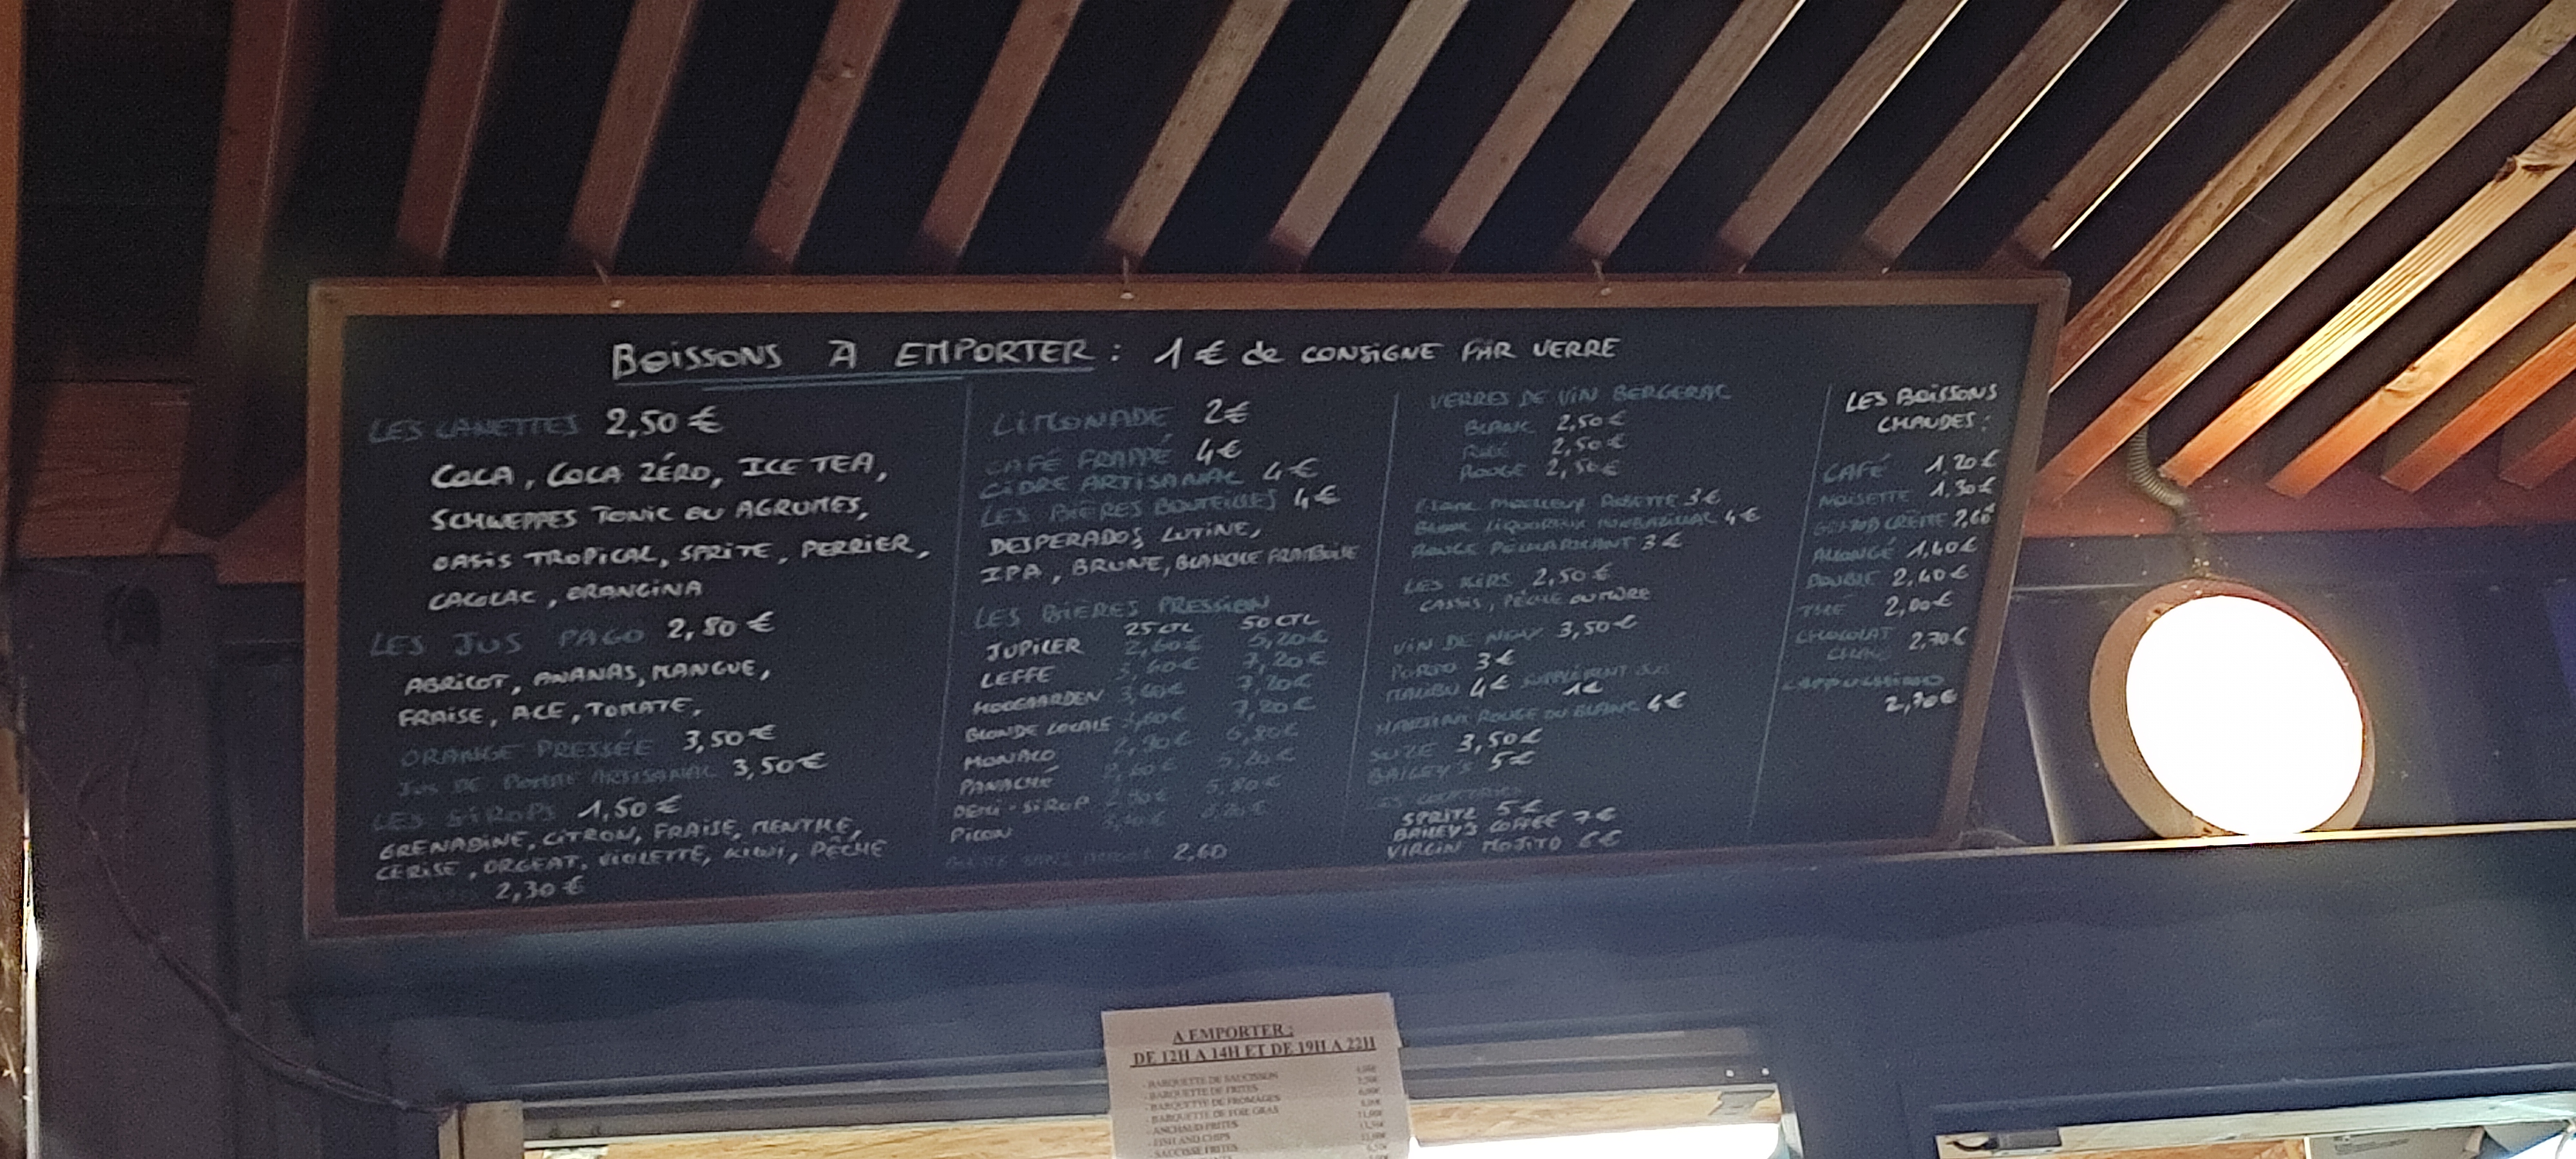 BOISSONS A EMPORTER : 1 € de CONSIGNE PAR VERRE
LES CANETTES 2,50 €
COCA, COCA ZÉRO, ICE TEA,
SCHWEPPES TONIC OU AGRUMES,
OASIS TROPICAL, SPRITE, PERRIER,
CACOLAC, ORANGINA
LES JUS PAGO 2,80 €
ABRICOT, ANANAS, MANGUE,
FRAISE, ACE, TOMATE,
ORANGE PRESSÉE 3,50 €
JUS DE POMME ARTISANAL 3,50 €
LES SIROPS 1,50 €
GRENADINE, CITRON, FRAISE, MENTHE,
CERISE, ORGEAT, VIOLETTE, KIWI, PÊCHE
2,30 €
LIMONADE 2€
CAFÉ FRAPPÉ 4€
CIDRE ARTISANAL 4€
LES BIÈRES BOUTEILLES 4€
DESPERADOS, LUTINE,
IPA, BRUNE, BLANCHE FRAMBOISE
LES BIÈRES PRESSION
25 CTL 50 CTL
JUPILER 2,60€ 5,20€
LEFFE 3,60€ 7,20€
HOEGAARDEN 3,60€ 7,20€
BLONDE LOCALE 7,20€
MONACO 2,90€
PANACHÉ 2,60€ 5,20€
DEMI-SIROP 2,90€ 5,80€
PICON
2,60
VERRES DE VIN BERGERAC
BLANC 2,50€
ROSÉ 2,50€
ROUGE 2,50€
BLANC MOELLEUX ROSETTE 3€
BLANC LIQUOREUX MONBAZILLAC 4€
ROUGE PÉCHARMANT 3€
LES KIRS 2,50€
CASSIS, PÊCHE OU MÛRE
VIN DE NOIX 3,50€
PORTO 3€
MALIBU 4€ SUPPLÉMENT
1€
MARTINI ROUGE OU BLANC 4€
SUZE 3,50€
BAILEY'S 5€
LES COCKTAILS
SPRITZ 5€
BAILEY'S COFFEE 7€
VIRGIN MOJITO 6€
LES BOISSONS
CHAUDES :
CAFÉ 1,20€
NOISETTE 1,30€
GRAND CRÈME 2,60
ALLONGÉ 1,40€
DOUBLE 2,40€
THÉ 2,00€
CHOCOLAT 2,70€
CHAUD
CAPPUCCINO
2,70€
A EMPORTER :
DE 12H A 14H ET DE 19H A 22H
- BARQUETTE DE SAUCISSON
- BARQUETTE DE FRITES
- BARQUETTE DE FROMAGES
- BARQUETTE DE FOIE GRAS
- ANCHAUD FRITES
- FISH AND CHIPS
- SAUCISSE FRITES